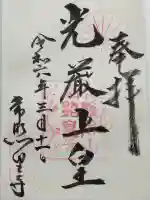 奉拝
光厳上皇
令和六年三月十一日
常照皇寺